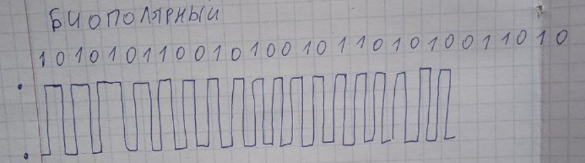 БИОПОЛЯРНЫЙ
1 0 1 0 1 0 1 1 0 0 1 0 1 0 0 1 0 1 1 0 1 0 1 0 0 1 1 0 1 0